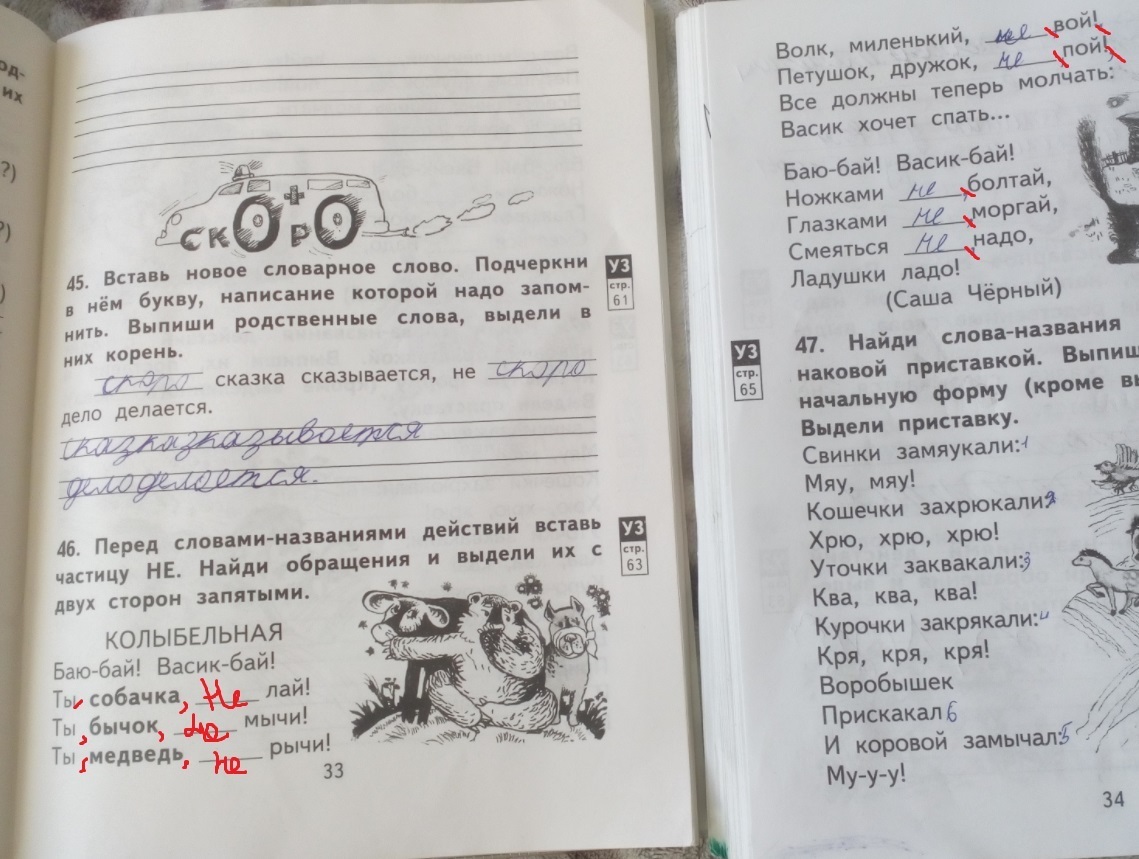 од-
их
?)
?)
)
СКОРО
45. Вставь новое словарное слово. Подчеркни
в нём букву, написание которой надо запом-
нить. Выпиши родственные слова, выдели в
них корень.
УЗ
стр.
61
скоро сказка сказывается, не скоро
дело делается.
делоделается.
46. Перед словами-названиями действий вставь
частицу НЕ. Найди обращения и выдели их с
двух сторон запятыми.
УЗ
стр.
63
КОЛЫБЕЛЬНАЯ
Баю-бай! Васик-бай!
Ты, собачка, не лай!
Ты, бычок, не мычи!
Ты, медведь, не рычи!
33
Волк, миленький, не, вой!,
Петушок, дружок, не, пой!,
Все должны теперь молчать:
Васик хочет спать...
Баю-бай! Васик-бай!
Ножками не, болтай,
Глазками не, моргай,
Смеяться не, надо,
Ладушки ладо!
(Саша Чёрный)
УЗ
стр.
65
47. Найди слова-названия
наковой приставкой. Выпиш
начальную форму (кроме вы
Выдели приставку.
Свинки замяукали:1
Мяу, мяу!
Кошечки захрюкали:2
Хрю, хрю, хрю!
Уточки заквакали:3
Ква, ква, ква!
Курочки закрякали:4
Кря, кря, кря!
Воробышек
Прискакал6
И коровой замычал:5
Му-у-у!
34